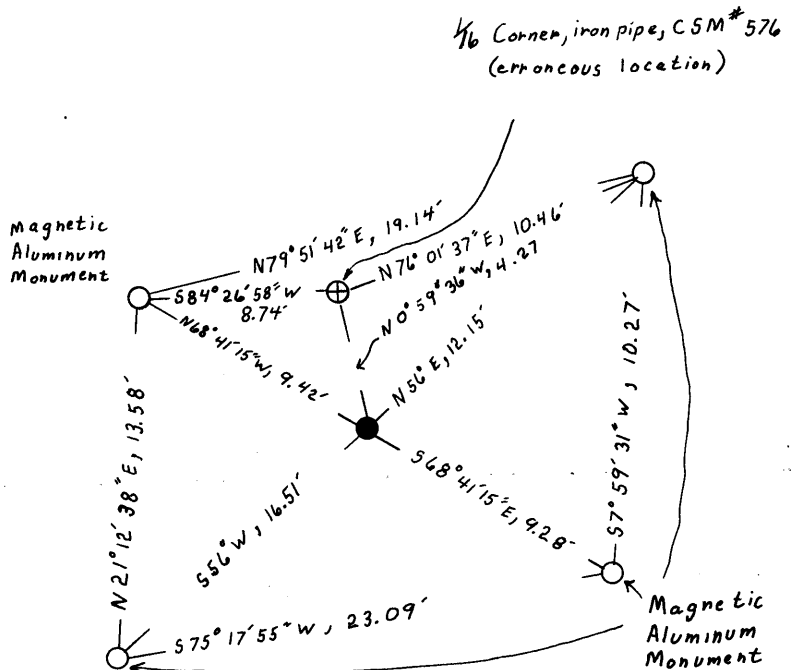 1/16 Corner, iron pipe, CSM #576
(erroneous location)
Magnetic
Aluminum
Monument
N79° 51' 42" E, 19.14'
N76° 01' 37" E, 10.46'
S84° 26' 58" W
8.74'
N0° 59' 36" W, 4.27
N68° 41' 15" W, 9.42'
N56° E, 12.15'
S7° 59' 31" W, 10.27'
N21° 12' 38" E, 13.58'
S68° 41' 15" E, 9.28'
S56° W, 16.51'
S75° 17' 55" W, 23.09'
Magnetic
Aluminum
Monument